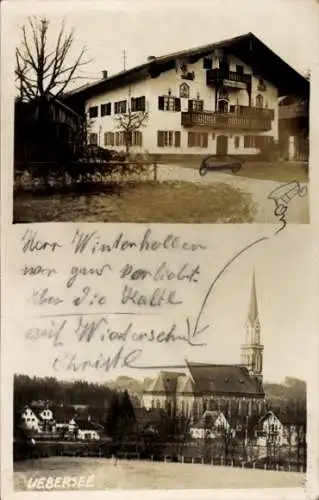 Herr Winterhollen
war ganz verliebt
über die Kalte
auf Wiedersehn
Christl
UEBERSEE